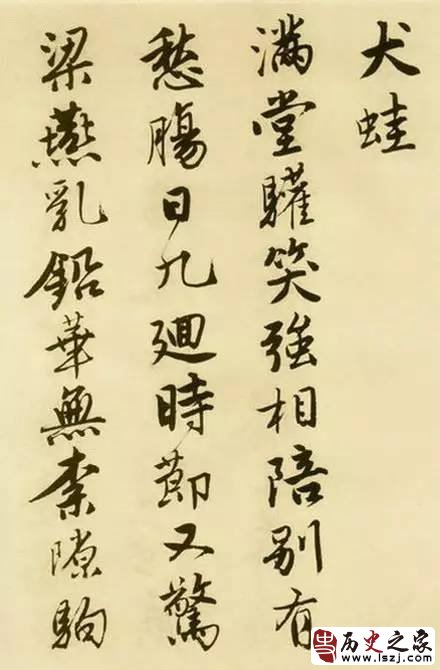 犬蛙
滿堂驩笑強相陪别有
愁膓日九廻時莭又驚
梁燕乳鉛華無柰隙駒
史 历史之家
www.lszj.com